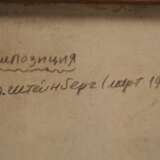 мпозиция
э.штейнберг (март 19